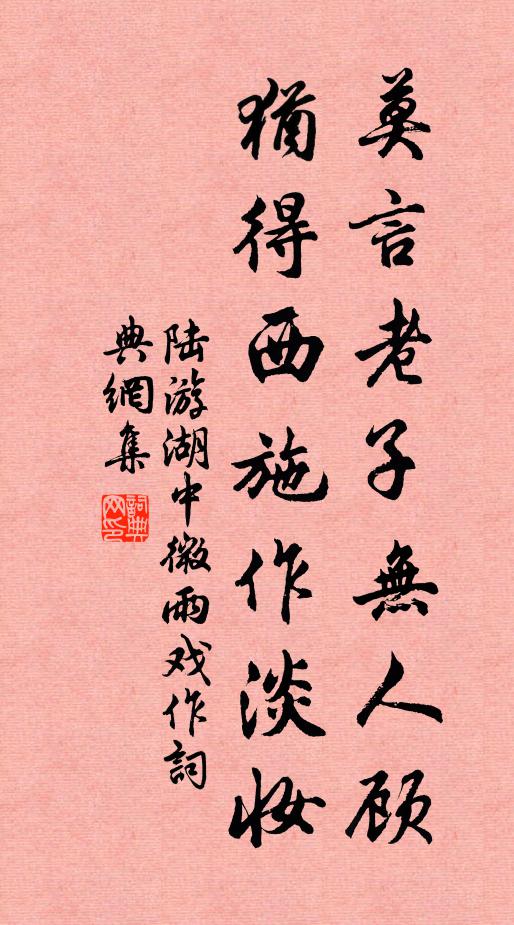 莫言老子無人顾
猶得西施作淡妝
陆游湖中微雨戏作詞
典網集
詞典网印